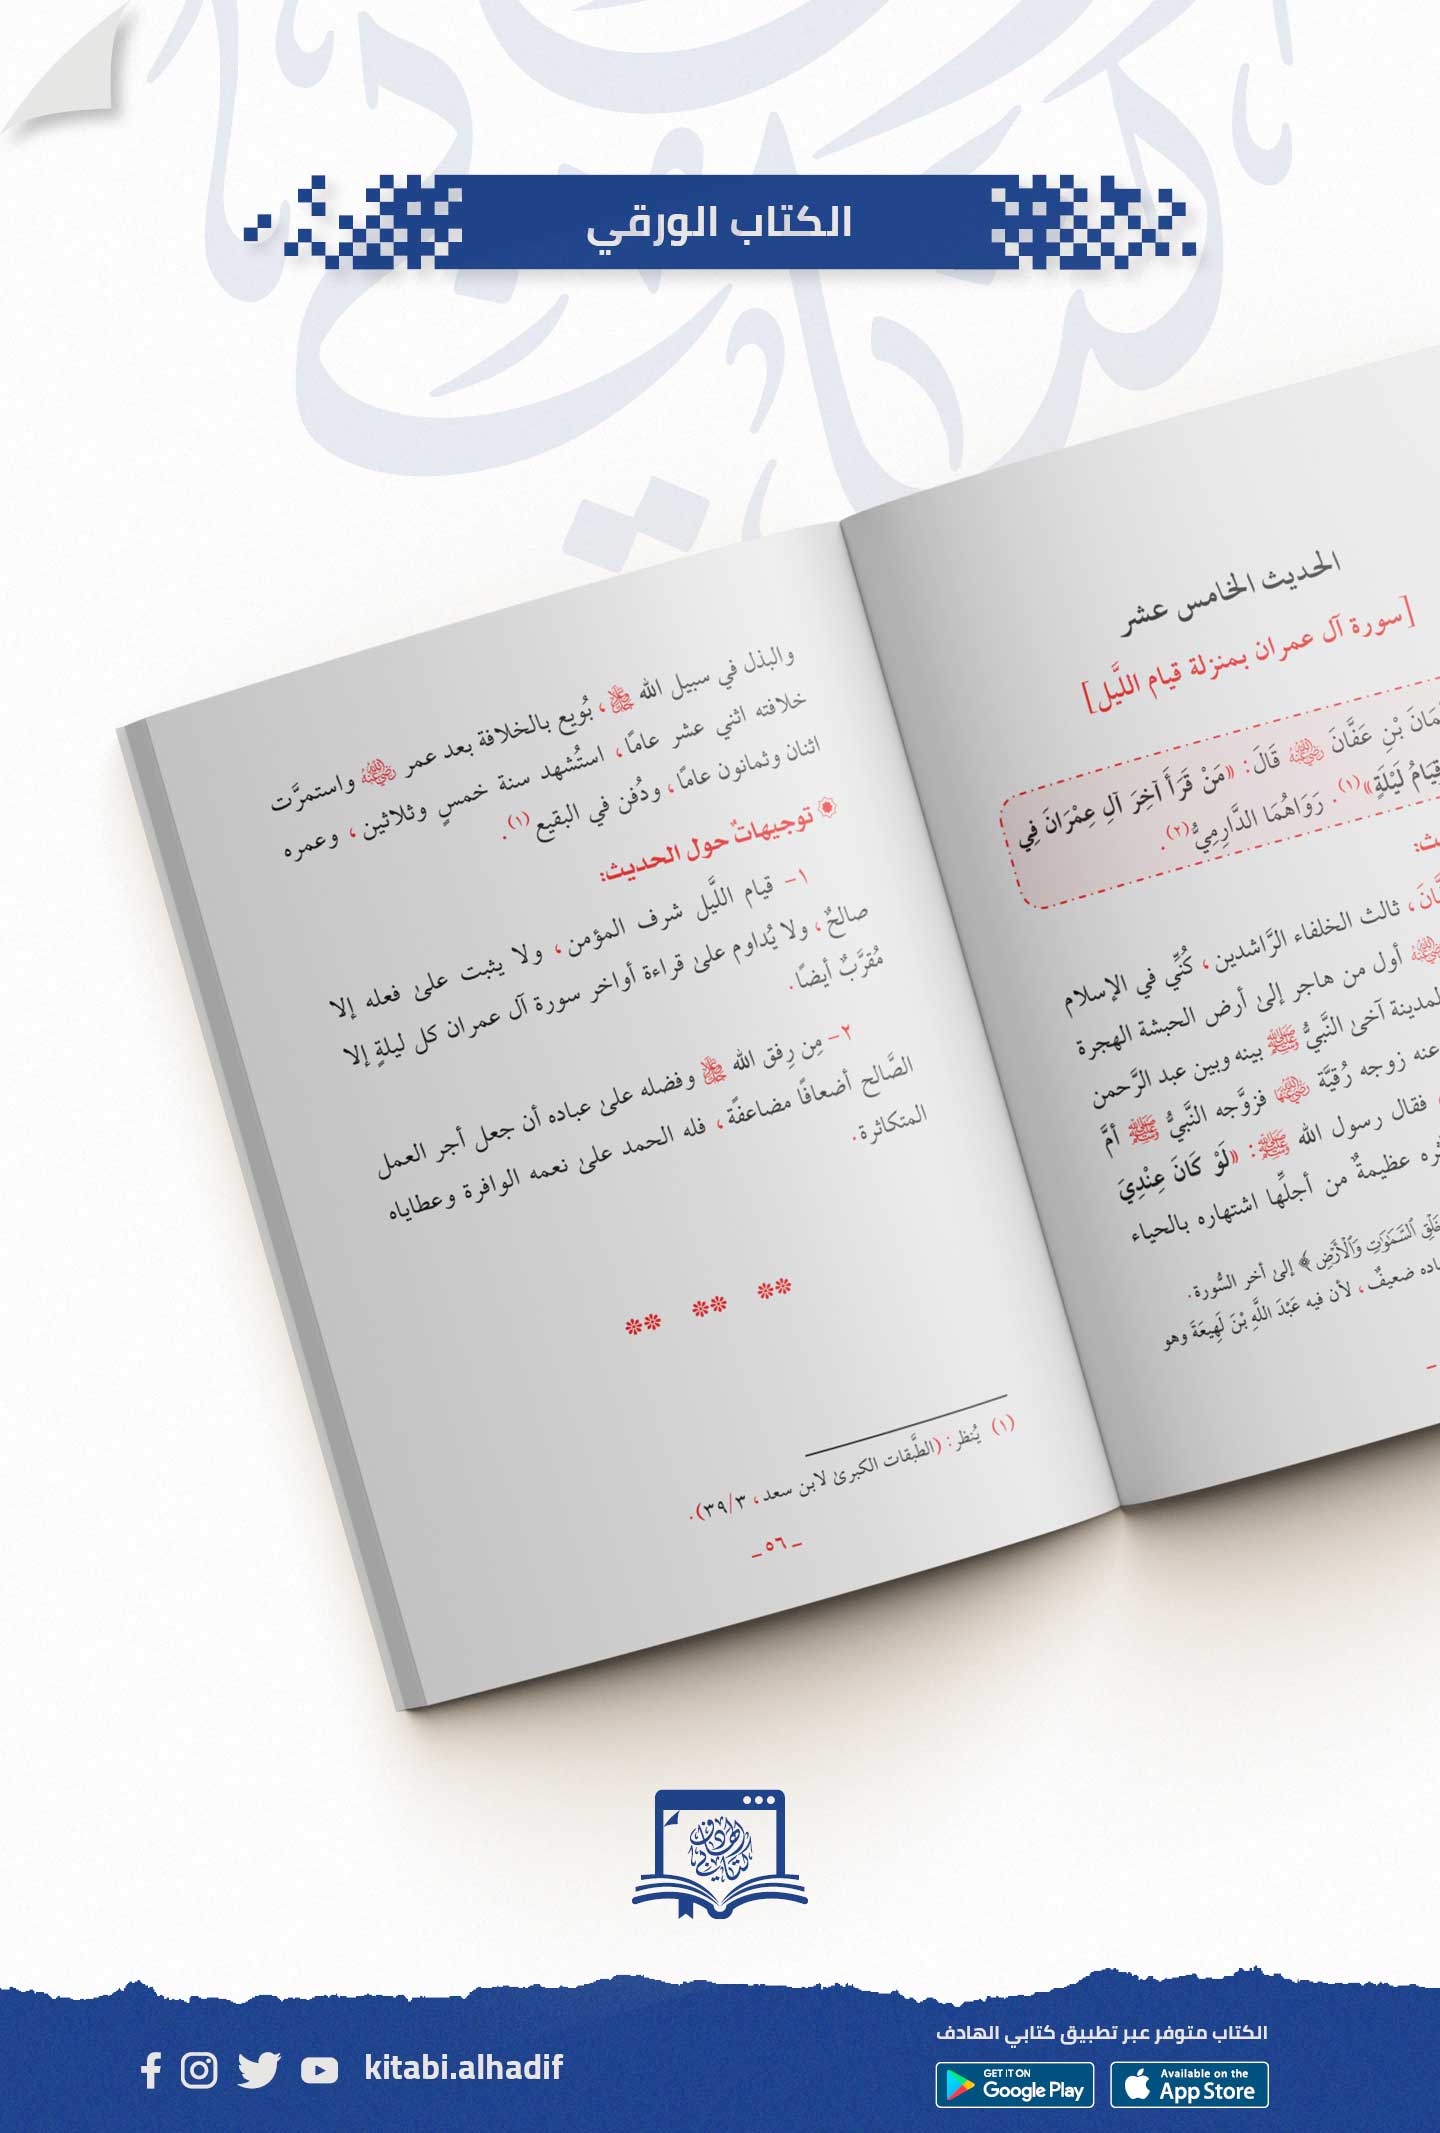 الكتاب الورقي
الحديث الخامس عشر
[سورة آل عمران بمنزلة قيام اللَّيل]
بْنِ عَفَّانَ رضي الله عنه قَالَ: «مَنْ قَرَأَ آخِرَ آلِ عِمْرَانَ فِي
قِيَامُ لَيْلَةٍ»(١). رَوَاهُمَا الدَّارِمِيُّ(٢).
ثالث الخلفاء الرَّاشدين، كُنِّي في الإسلام
أول من هاجر إلىٰ أرض الحبشة الهجرة
آخىٰ النَّبيُّ ﷺ بينه وبين عبد الرَّحمن
عنه زوجه رُقيَّة رضي الله عنها فزوَّجه النَّبيُّ ﷺ أمَّ
فقال رسول الله ﷺ: «لَوْ كَانَ عِنْدِيَ
عظيمةٌ من أجلِّها اشتهاره بالحياء
ٱلسَّمَٰوَٰتِ وَٱلْأَرْضِ﴾ إلىٰ أخر السُّورة.
ضعيفٌ، لأن فيه عَبْدَ اللَّهِ بْنَ لَهِيعَةَ وهو
والبذل في سبيل الله ﷻ، بُويع بالخلافة بعد عمر رضي الله عنه واستمرَّت
خلافته اثني عشر عامًا، استُشهد سنة خمسٍ وثلاثين، وعمره
اثنان وثمانون عامًا، ودُفن في البقيع(١).
توجيهاتٌ حول الحديث:
١- قيام اللَّيل شرف المؤمن، ولا يثبت علىٰ فعله إلا
صالحٌ، ولا يُداوم علىٰ قراءة أواخر سورة آل عمران كل ليلةٍ إلا
مُقرَّبٌ أيضًا.
٢- مِن رِفق الله ﷻ وفضله علىٰ عباده أن جعل أجر العمل
الصَّالح أضعافًا مضاعفةً، فله الحمد علىٰ نعمه الوافرة وعطاياه
المتكاثرة.
(١) يُنظر: (الطَّبقات الكبرىٰ لابن سعد، ٣/٣٩).
ـ ٥٦ ـ
كتابي الهادف
الكتاب متوفر عبر تطبيق كتابي الهادف
GET IT ON
Google Play
Available on the
App Store
kitabi.alhadif